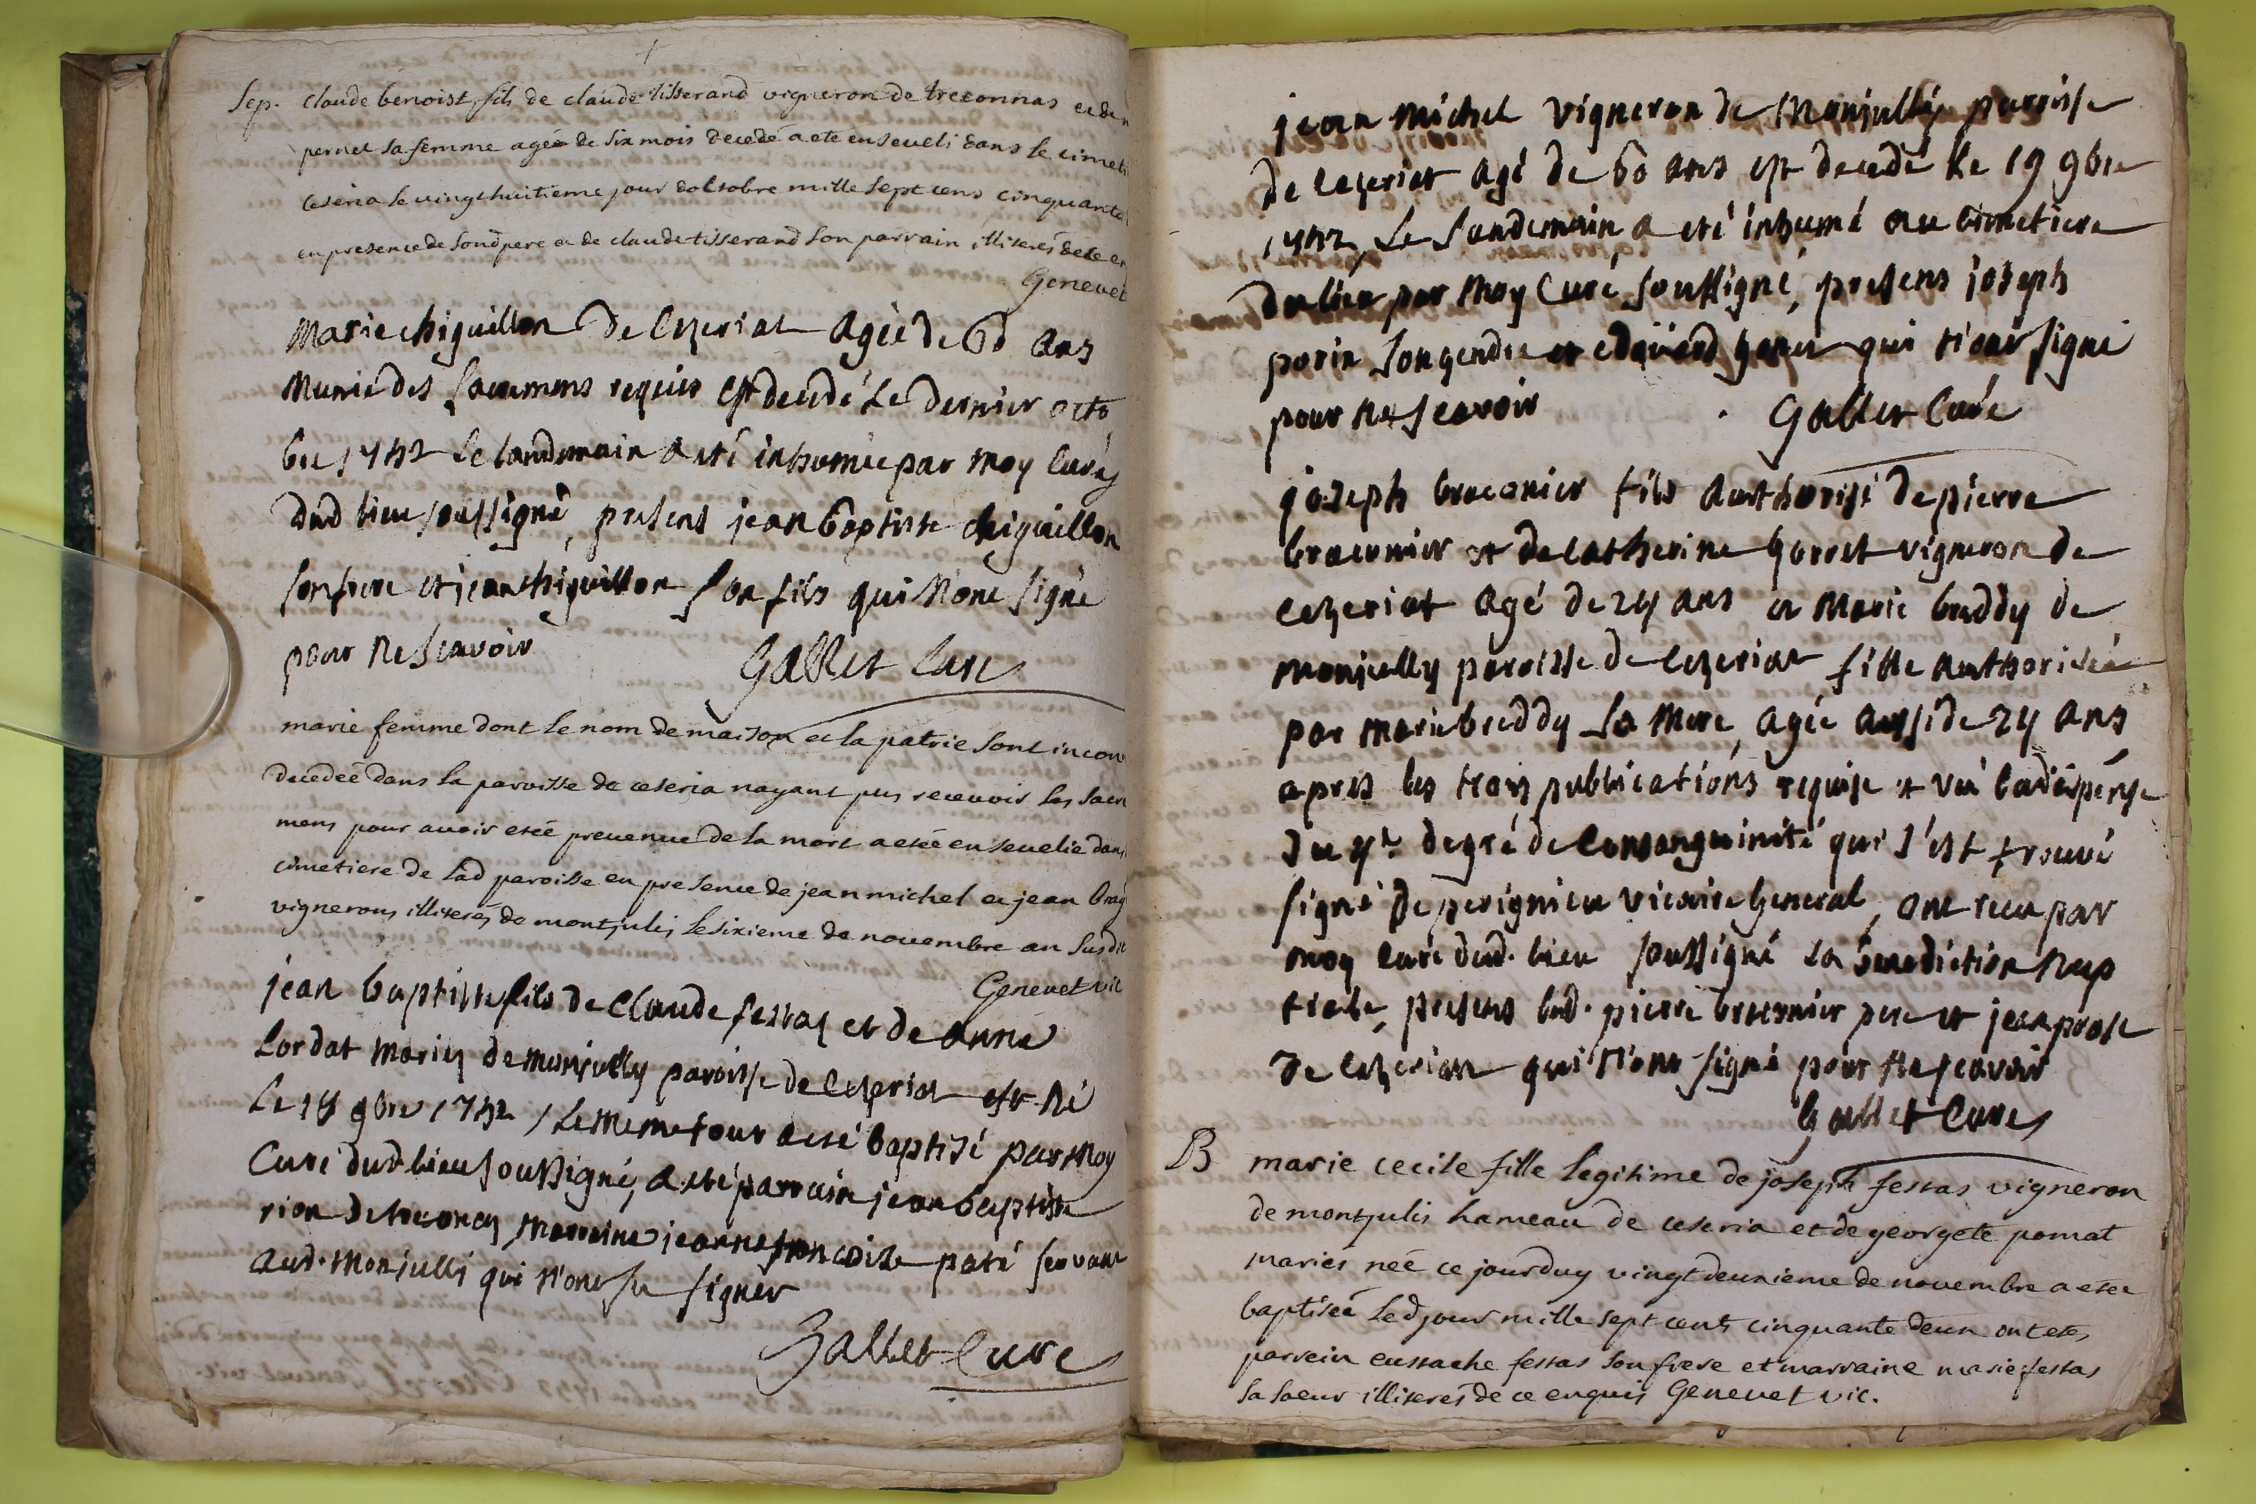 Sep. claude benoist, fils de claude tisserand vigneron de treconnas et de
pernet sa femme agée de six mois decedé a ete enseveli dans le cimeti
ceseria le vingt huitieme jour doctobre mille sept cens cinquante
en presence de sond pere et de claude tisserand son parrain illiterés de ce en
Genevet
Marie chiguillon de Cezeriat agée de ans
Munie des sacremens requis est decedé Le dernier octo
bre 1752 Le landemain a eté inhumée par moy Curé
dud lieu soussigné, presens jean baptiste chiguillon
son frere et jean chiguillon son fils qui N'ont signé
pour Ne scavoir Gallet Curé
marie femme dont le nom de maison et la patrie sont incon
decedeé dans la paroisse de ceseria nayant pus recevoir les sacre
mens pour avoir eteé prevenue de la mort a eteé ensevelie dans
cimetiere de lad paroisse en presence de jean michel et jean
vignerons illiterés de montjulis le sixieme de novembre an susdit
Genevet vic
jean baptiste fils de Claude festas et de anne
Lordat Mariés de monjully paroisse de Cezeriat est Né
Le 9bre 1752 / Le meme jour a eté baptisé par moy
Curé dud lieu soussigné, a eté parrain jean baptiste
rion de treconas, Marraine jeanne francoise paté servante
aud. Monjulli qui N'ont su signer
Gallet Curé
jean michel vigneron de Monjully paroisse
de Cezeriat agé de 60 ans est decedé Le 19 9bre
1752, Le landemain a eté inhumé au cimetiere
du lieu par moy Curé soussigné, presens joseph
perin son gendre et edouard qui n'ont signé
pour Ne scavoir Gallet Curé
joseph braconier fils authorisé de pierre
braconnier et de catherine gorret vigneron de
Cezeriat agé de 24 ans et Marie buddy de
monjully paroisse de Cezeriat fille authorisée
par marie buddy sa Mere, agée aussi de 24 ans
apres les trois publications requise et vû la dispense
du 4e degré de Consanguinité qui s'est trouvé
signé De perignieu vicaire General, ont recu par
moy curé dud. lieu soussigné La benediction Nup
tiale, presens led. pierre braconnier pere et jean prost
de Cezeriat qui N'ont signé pour Ne scavoir
Gallet Curé
B marie cecile fille legitime de joseph festas vigneron
de montjulis hameau de ceseria et de georgete pomat
mariés neé ce jourduy vingt deuxieme de novembre a etee
baptiseé led jour mille sept cent cinquante deux ont etes
parrein eustache festas son frere et marraine marie festas
sa soeur illiterés de ce enquis Genevet vic.